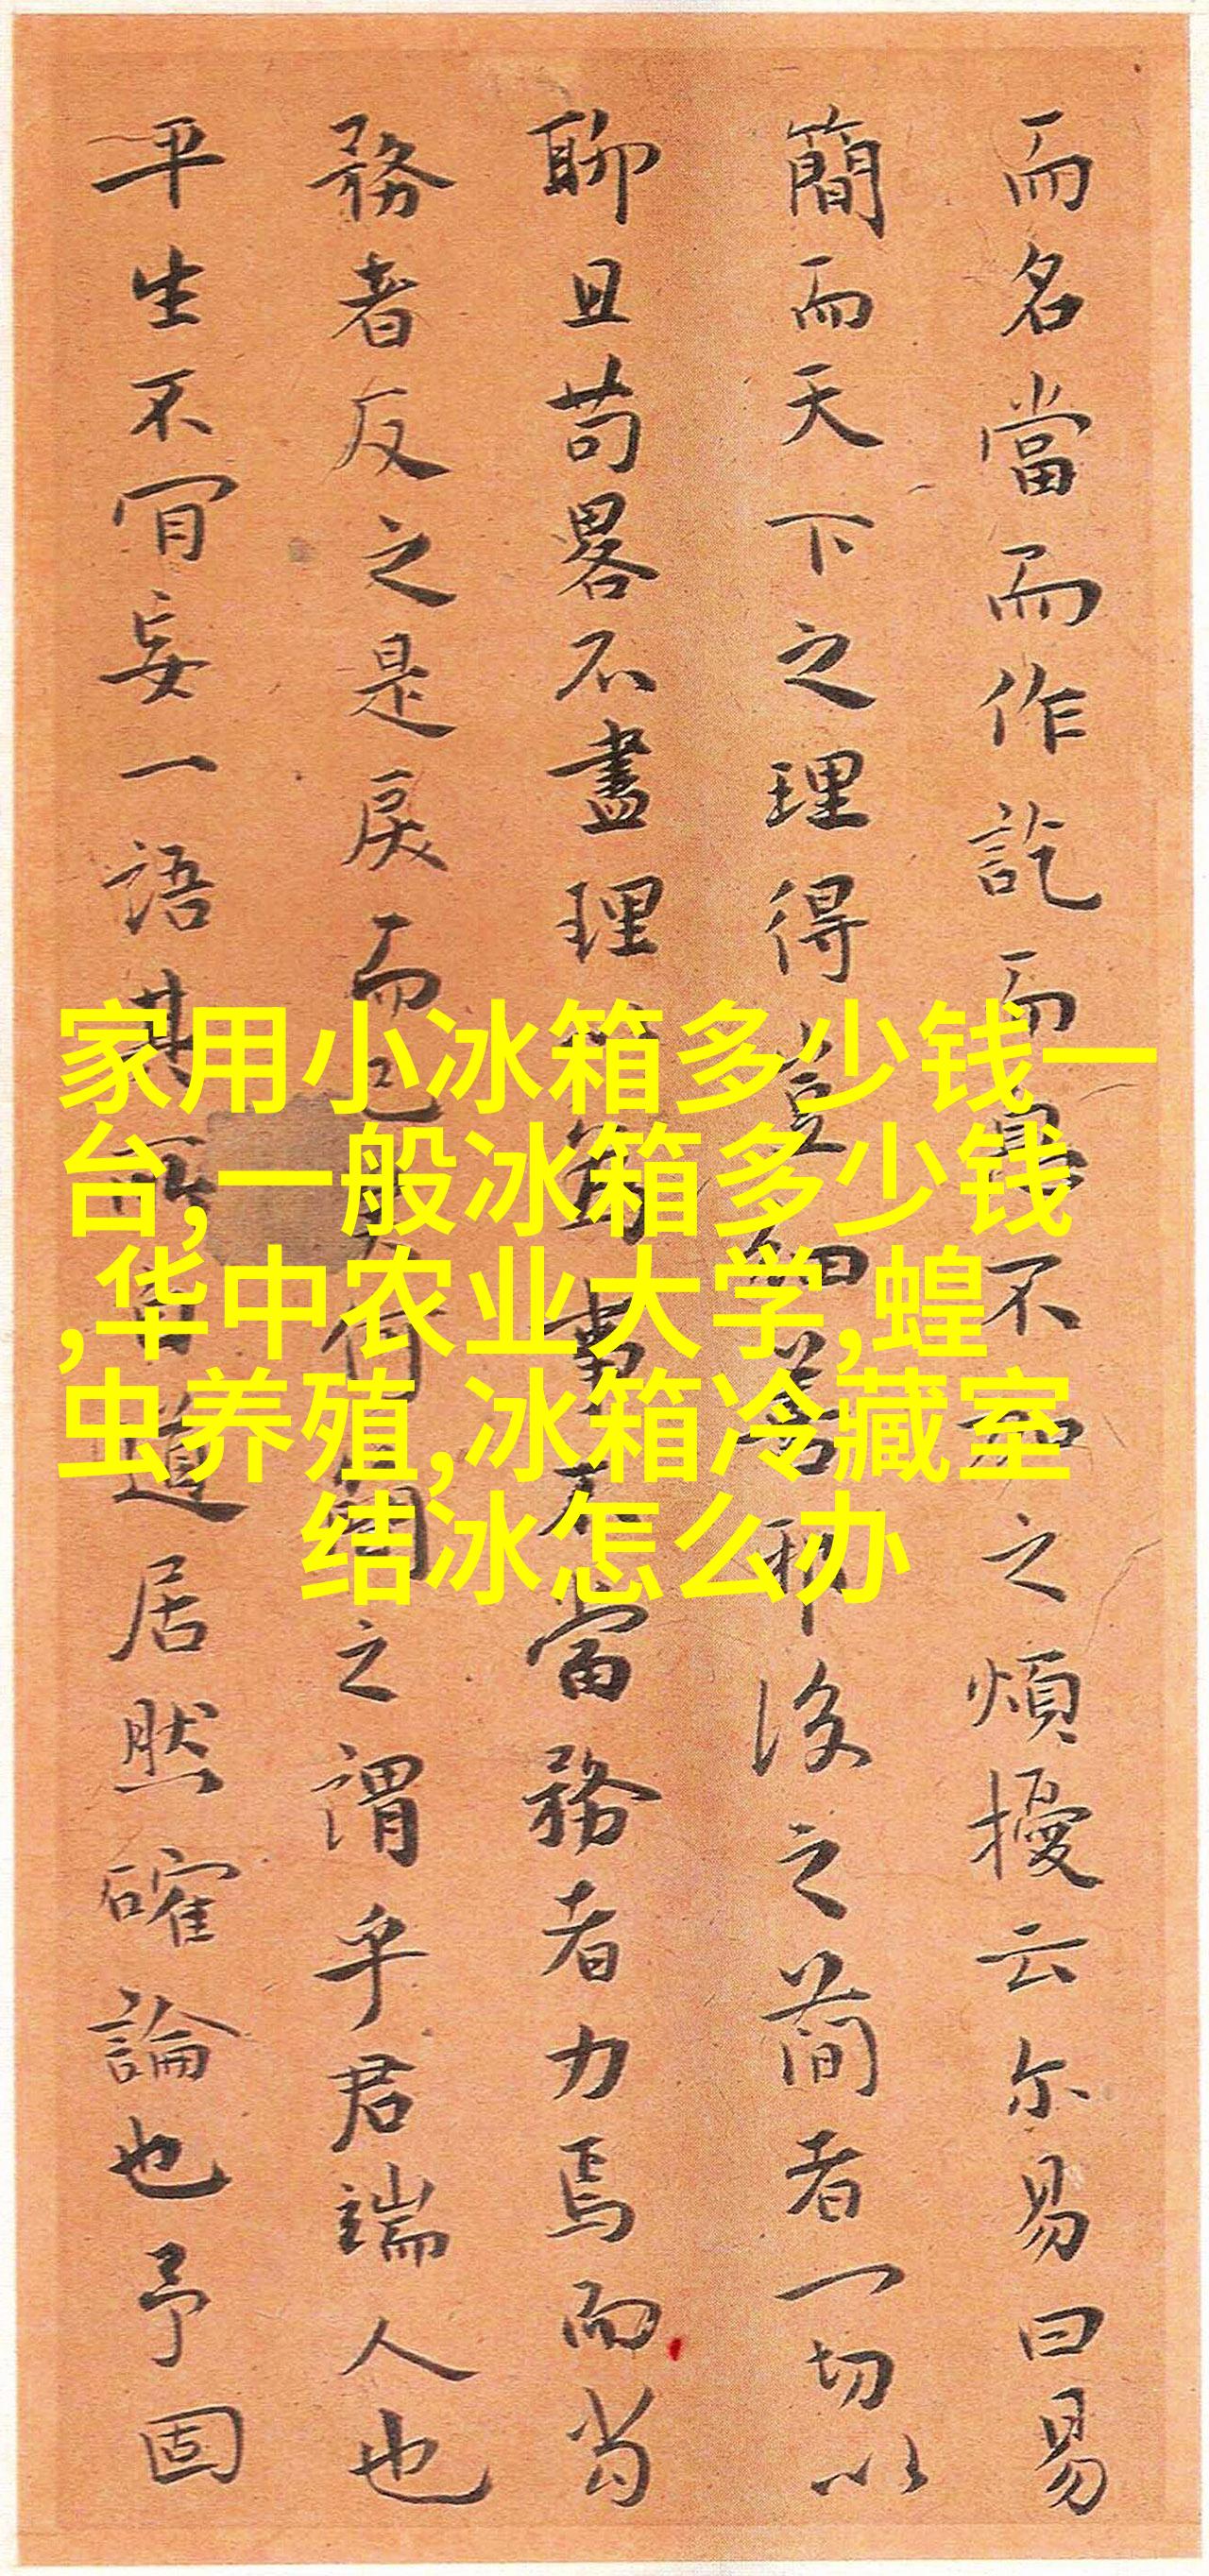 而名當而作訖而不之煩擾云尔易曰易
簡而天下之理得豈細耶後之简者一切以
聊且苟畧不盡理事不當務者力焉而當
務者反之是戾而已何簡之謂乎君端人也
平生不肎妄一語其所自道居然確論也予固
家用小冰箱多少钱一
台,一般冰箱多少钱
,华中农业大学,蝗
虫养殖,冰箱冷藏室
结冰怎么办